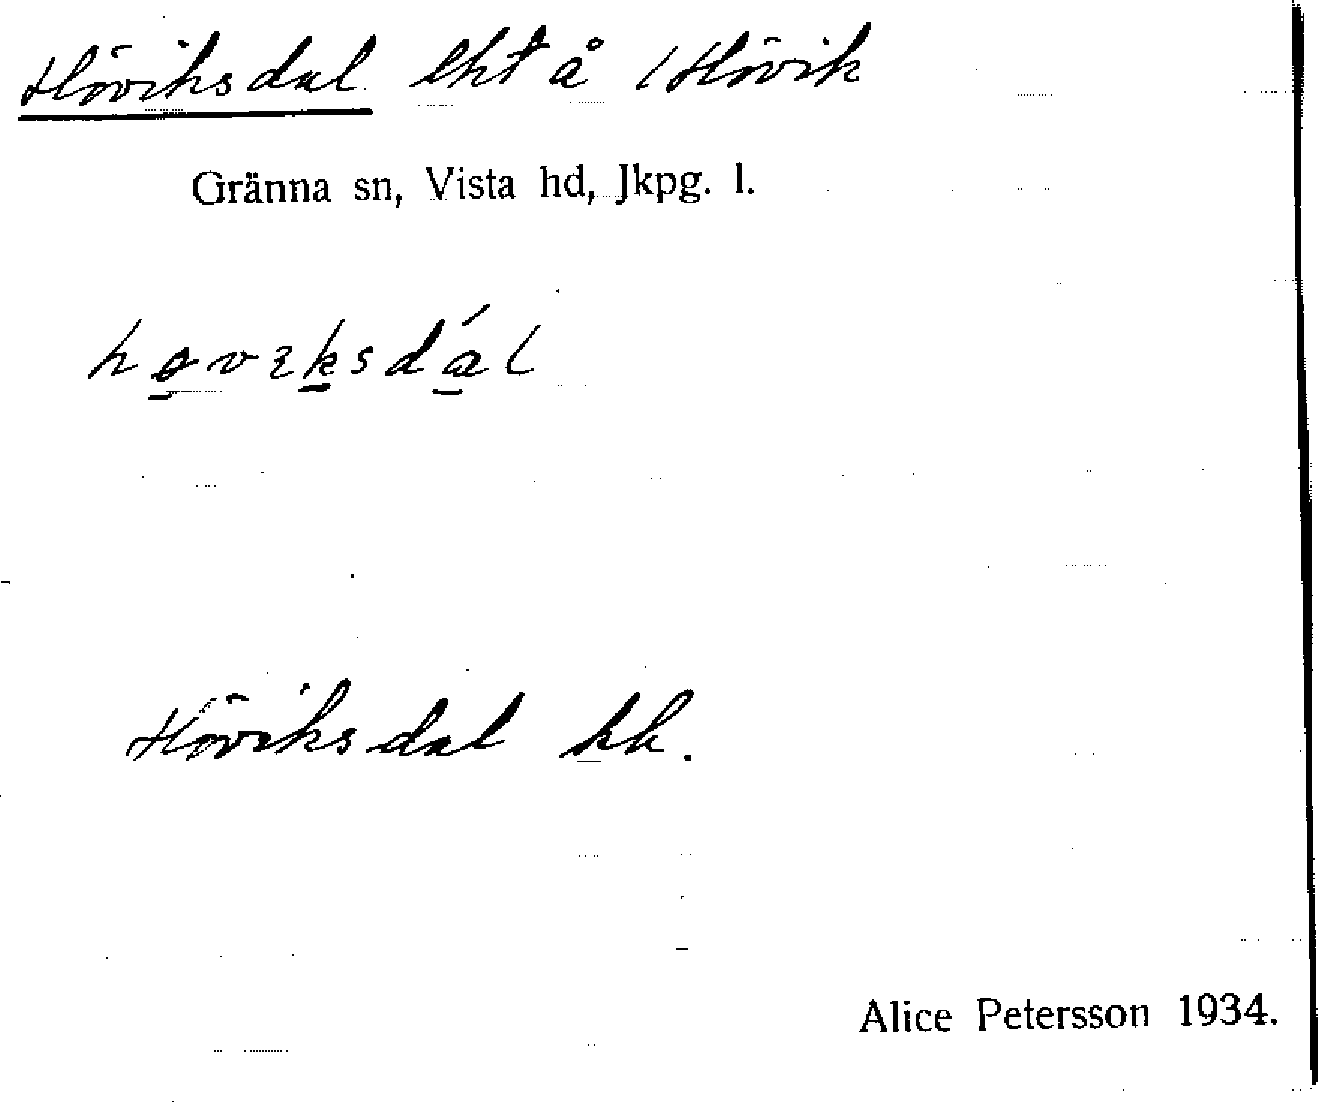 Höviksdal lht å 1 Hövik
Gränna sn, Vista hd, Jkpg. l.
høvıksdál
Höviksdal kk.
Alice Petersson 1934.